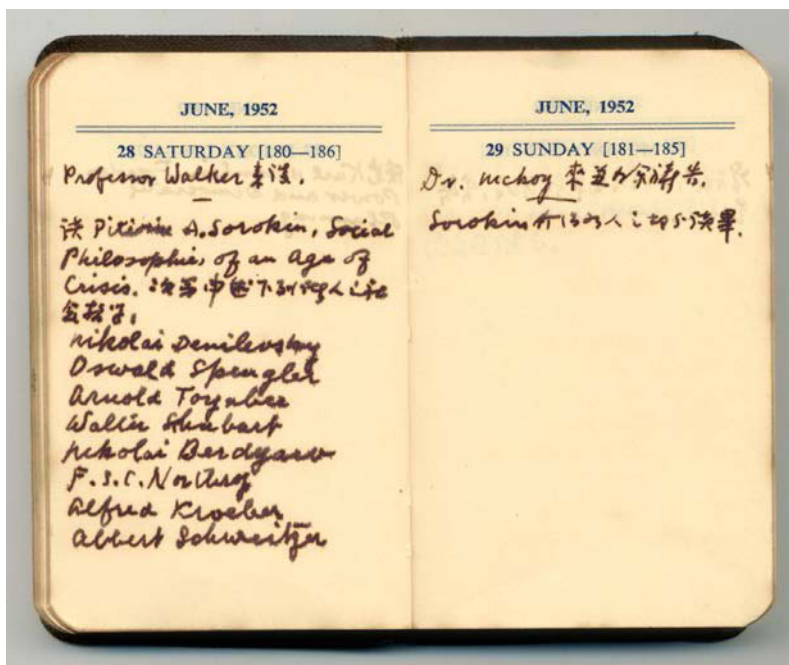 JUNE, 1952
28 SATURDAY [180—186]
Professor Walker 來談.
讀 Pitirim A. Sorokin, Social
Philosophies of an Age of
Crisis. 述下列諸人之社
會哲學,
Nikolai Danilevsky
Oswald Spengler
Arnold Toynbee
Walter Shubart
Nikolai Berdyaev
F.S.C. Northrop
Alfred Kroeber
Albert Schweitzer
JUNE, 1952
29 SUNDAY [181—185]
Dr. McKoy 來
Sorokin 介紹的人